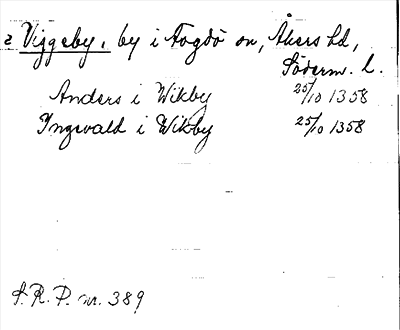 2 Viggeby, by i Fogdö sn, Åkers hd,
Söderm. l.
Anders i Wikby 25/10 1358
Ingevald i Wikby 25/10 1358
S. R. P. nr. 389